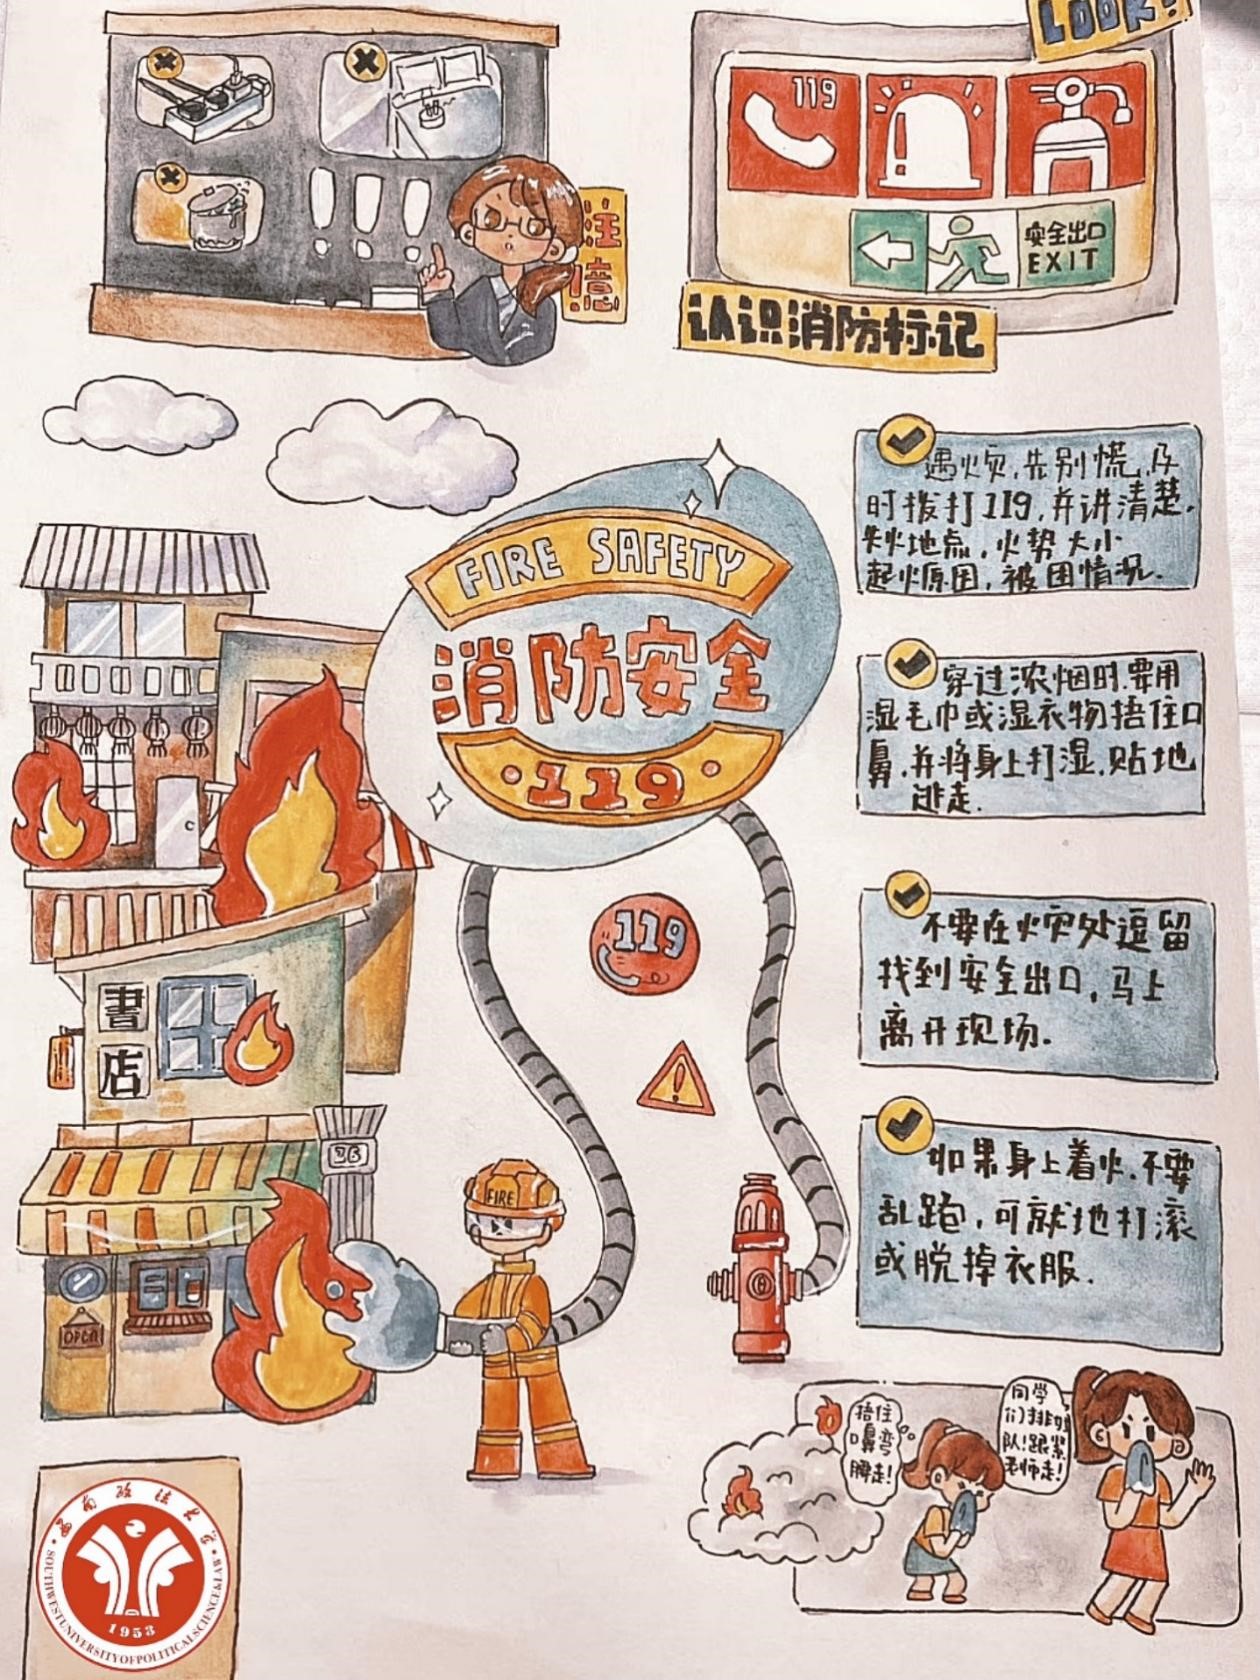 LOOK!
119
安全出口
EXIT
注意
认识消防标记
FIRE SAFETY
消防安全
119
遇火灾，先别慌，及
时拨打119，并讲清楚，
失火地点，火势大小
起火原因，被困情况．
穿过浓烟时，要用
湿毛巾或湿衣物捂住口
鼻，并将身上打湿，贴地
逃走．
不要在火灾处逗留
找到安全出口，马上
离开现场．
如果身上着火，不要
乱跑，可就地打滚
或脱掉衣服．
119
書
店
36
OPEN
FIRE
捂住
口鼻弯
腰走！
同学
们排好
队！跟紧
老师走！
西南政法大学
SOUTHWEST UNIVERSITY OF POLITICAL SCIENCE & LAW
1953